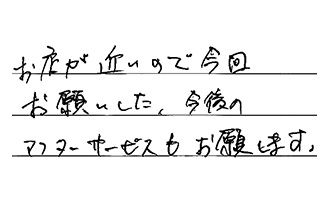 お店が近いので今回
お願いした、今後の
アフターサービスもお願します。